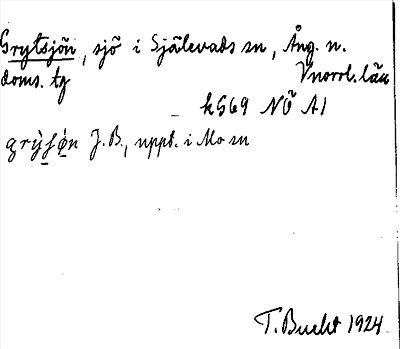 Grytsjön, sjö i Själevads sn, Ång. n.
doms. tg Vnorrl. län
k 569 NÖ A1
grỳʃø̀n J.B., uppt. i Mo sn
T. Bucht 1924